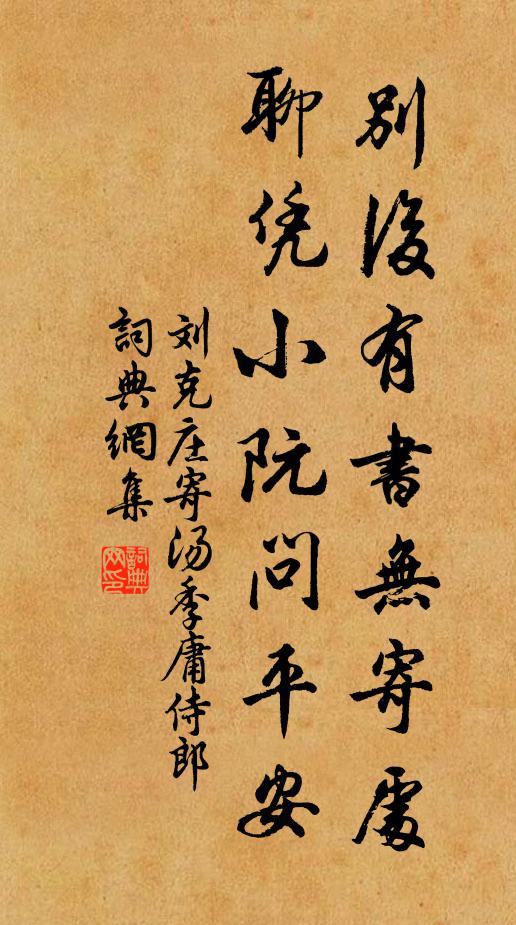 別後有書無寄處
聊凭小阮問平安
刘克庄寄汤季庸侍郎
詞典網集
詞典網印